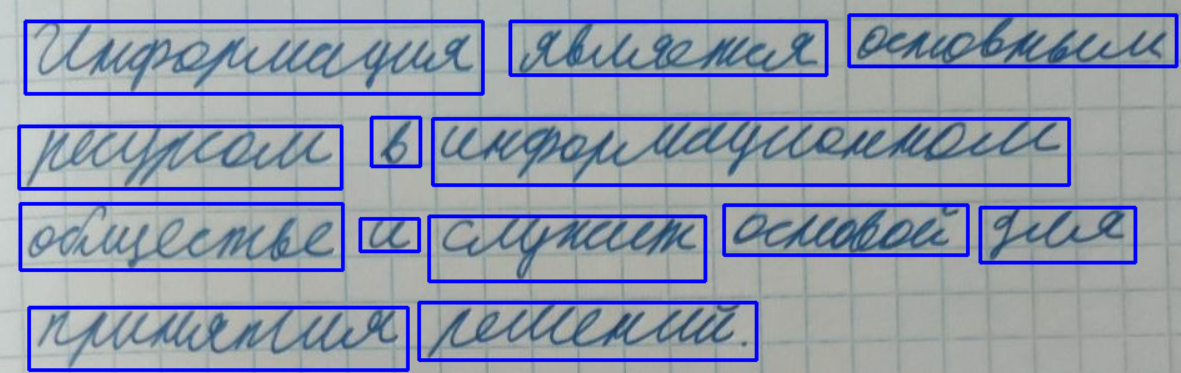 Информация является основным
ресурсом в информационном
обществе и служит основой для
принятия решений.